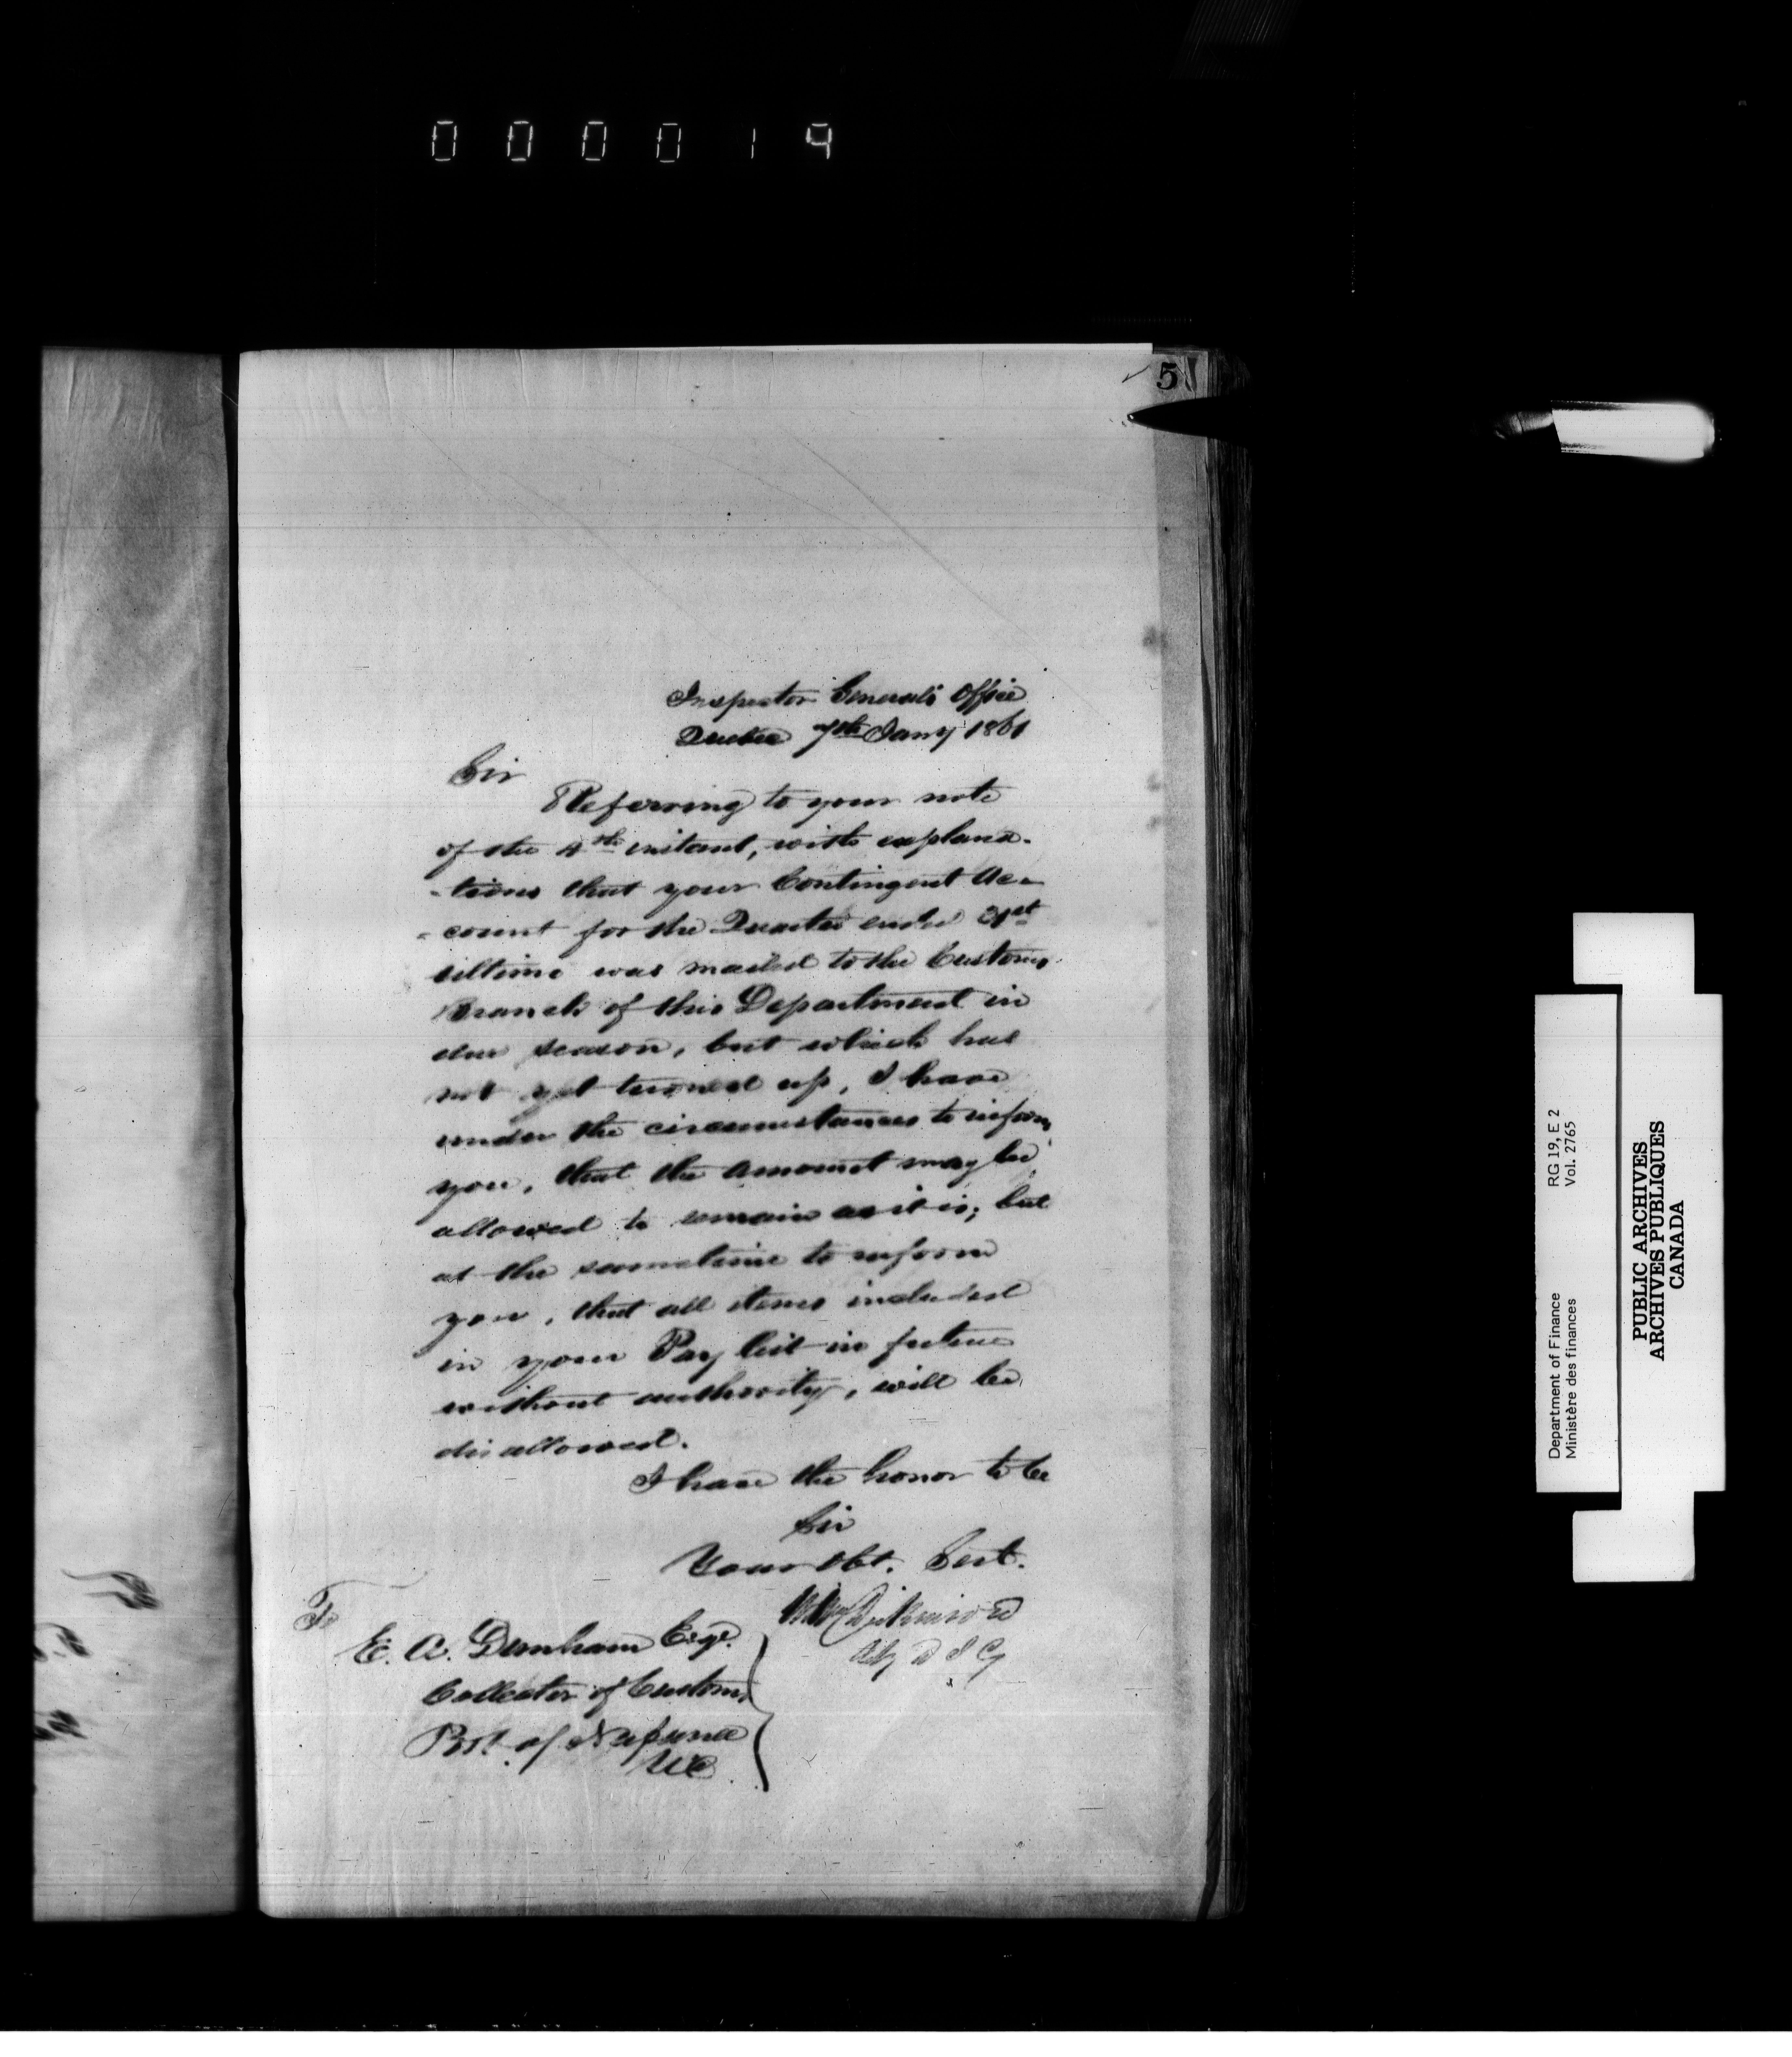 000019
5
Inspector General's Office
Quebec 7th Jany 1861
Sir
Referring to your note
of the 4th instant, with explana-
-tions that your Contingent Ac-
-count for the Quarter ended 31st
ultimo was mailed to the Customs
Branch of this Department in
due season, but which has
not yet turned up, I have
under the circumstances to inform
you, that the amount may be
allowed to remain as it is; but
at the sametime to inform
you, that all items included
in your Pay list in future
without authority, will be
disallowed.
I have the honor to be
Sir
Your Obt. Sert.
Dickinson
D I G
To
E. A. Dunham Esqr.
Collector of Customs
Port of Napanee
UC
RG 19, E 2
Vol. 2765
Department of Finance
Ministère des finances
PUBLIC ARCHIVES
ARCHIVES PUBLIQUES
CANADA